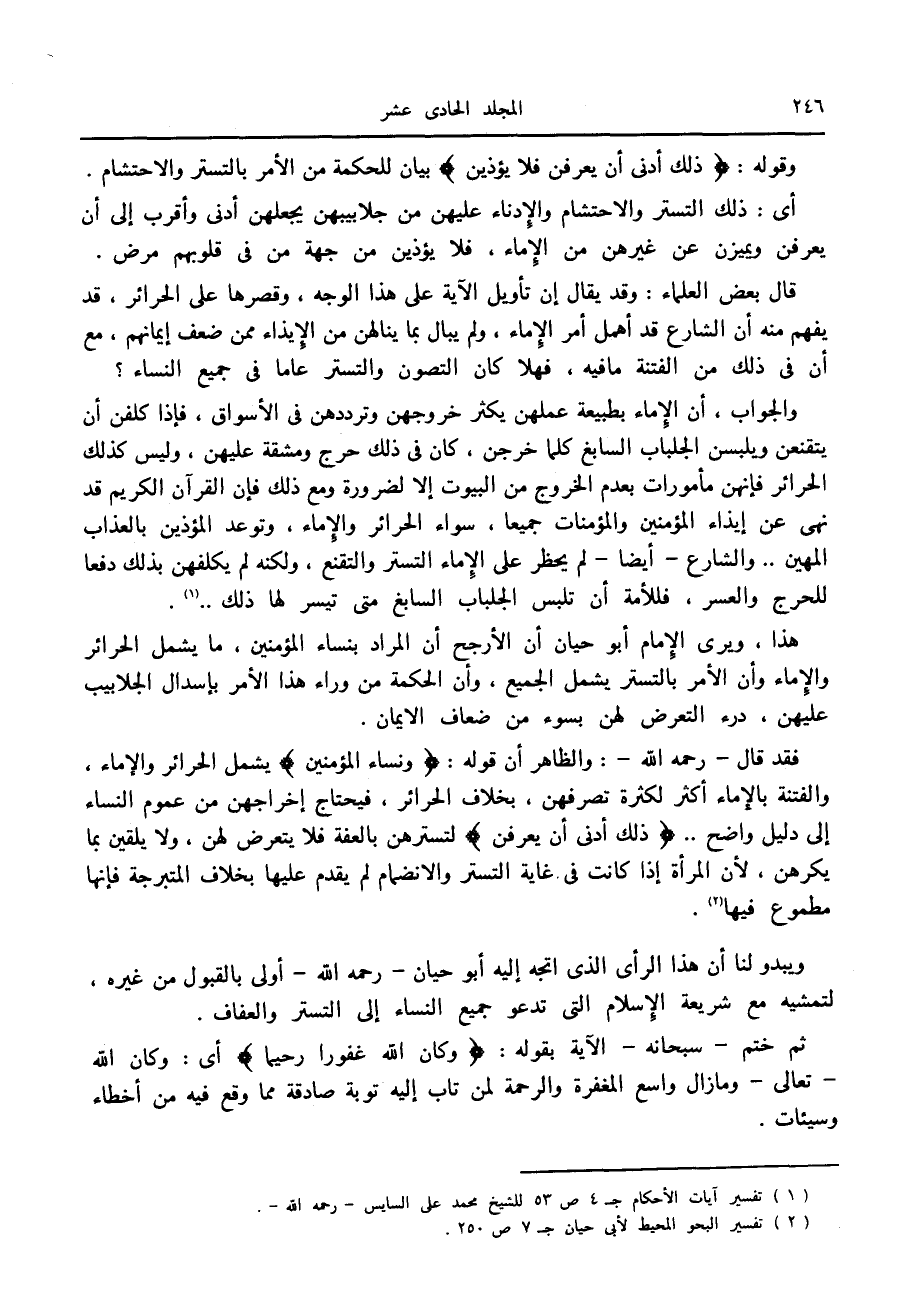 ٢٤٦ المجلد الحادى عشر
وقوله : ﴿ ذلك أدنى أن يعرفن فلا يؤذين ﴾ بيان للحكمة من الأمر بالتستر والاحتشام .
أى : ذلك التستر والاحتشام والإدناء عليهن من جلابيبهن يجعلهن أدنى وأقرب إلى أن
يعرفن ويميزن عن غيرهن من الإماء ، فلا يؤذين من جهة من فى قلوبهم مرض .
قال بعض العلماء : وقد يقال إن تأويل الآية على هذا الوجه ، وقصرها على الحرائر ، قد
يفهم منه أن الشارع قد أهمل أمر الإماء ، ولم يبال بما ينالهن من الإيذاء ممن ضعف إيمانهم ، مع
أن فى ذلك من الفتنة مافيه ، فهلا كان التصون والتستر عاما فى جميع النساء ؟
والجواب ، أن الإماء بطبيعة عملهن يكثر خروجهن وترددهن فى الأسواق ، فإذا كلفن أن
يتقنعن ويلبسن الجلباب السابغ كلما خرجن ، كان فى ذلك حرج ومشقة عليهن ، وليس كذلك
الحرائر فإنهن مأمورات بعدم الخروج من البيوت إلا لضرورة ومع ذلك فإن القرآن الكريم قد
نهى عن إيذاء المؤمنين والمؤمنات جميعا ، سواء الحرائر والإماء ، وتوعد المؤذين بالعذاب
المهين .. والشارع – أيضا – لم يحظر على الإماء التستر والتقنع ، ولكنه لم يكلفهن بذلك دفعا
للحرج والعسر ، فللأمة أن تلبس الجلباب السابغ متى تيسر لها ذلك ..(١) .
هذا ، ويرى الإمام أبو حيان أن الأرجح أن المراد بنساء المؤمنين ، ما يشمل الحرائر
والإماء وأن الأمر بالتستر يشمل الجميع ، وأن الحكمة من وراء هذا الأمر بإسدال الجلابيب
عليهن ، درء التعرض لهن بسوء من ضعاف الايمان .
فقد قال – رحمه الله – : والظاهر أن قوله : ﴿ ونساء المؤمنين ﴾ يشمل الحرائر والإماء ،
والفتنة بالإماء أكثر لكثرة تصرفهن ، بخلاف الحرائر ، فيحتاج إخراجهن من عموم النساء
إلى دليل واضح .. ﴿ ذلك أدنى أن يعرفن ﴾ لتسترهن بالعفة فلا يتعرض لهن ، ولا يلقين بما
يكرهن ، لأن المرأة إذا كانت فى غاية التستر والانضمام لم يقدم عليها بخلاف المتبرجة فإنها
مطموع فيها(٢) .
ويبدو لنا أن هذا الرأى الذى اتجه إليه أبو حيان – رحمه الله – أولى بالقبول من غيره ،
لتمشيه مع شريعة الإسلام التى تدعو جميع النساء إلى التستر والعفاف .
ثم ختم – سبحانه – الآية بقوله : ﴿ وكان الله غفورا رحيما ﴾ أى : وكان الله
– تعالى – ومازال واسع المغفرة والرحمة لمن تاب إليه توبة صادقة مما وقع فيه من أخطاء
وسيئات .
( ١ ) تفسير آيات الأحكام جـ ٤ ص ٥٣ للشيخ محمد على السايس – رحمه الله – .
( ٢ ) تفسير البحو المحيط لأبى حيان جـ ٧ ص ٢٥٠ .